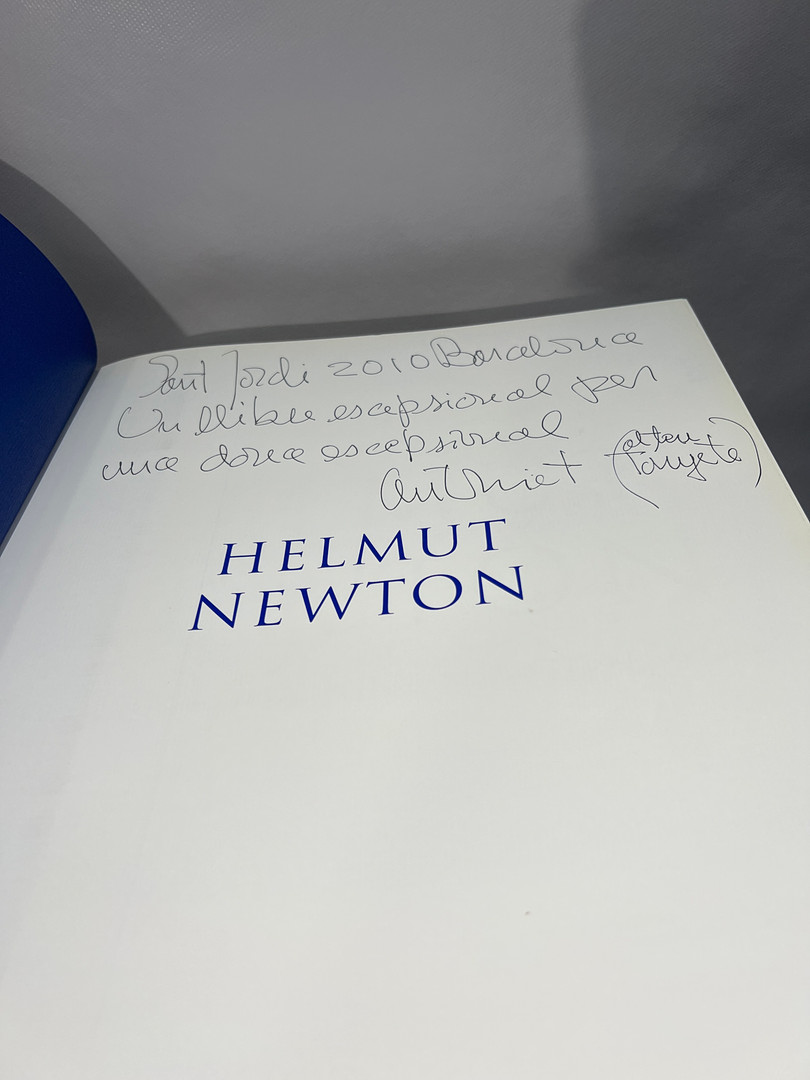 Sant Jordi 2010 Barcelona
Un llibre escepsional per
una dona escepsional
Antoniet
HELMUT
NEWTON